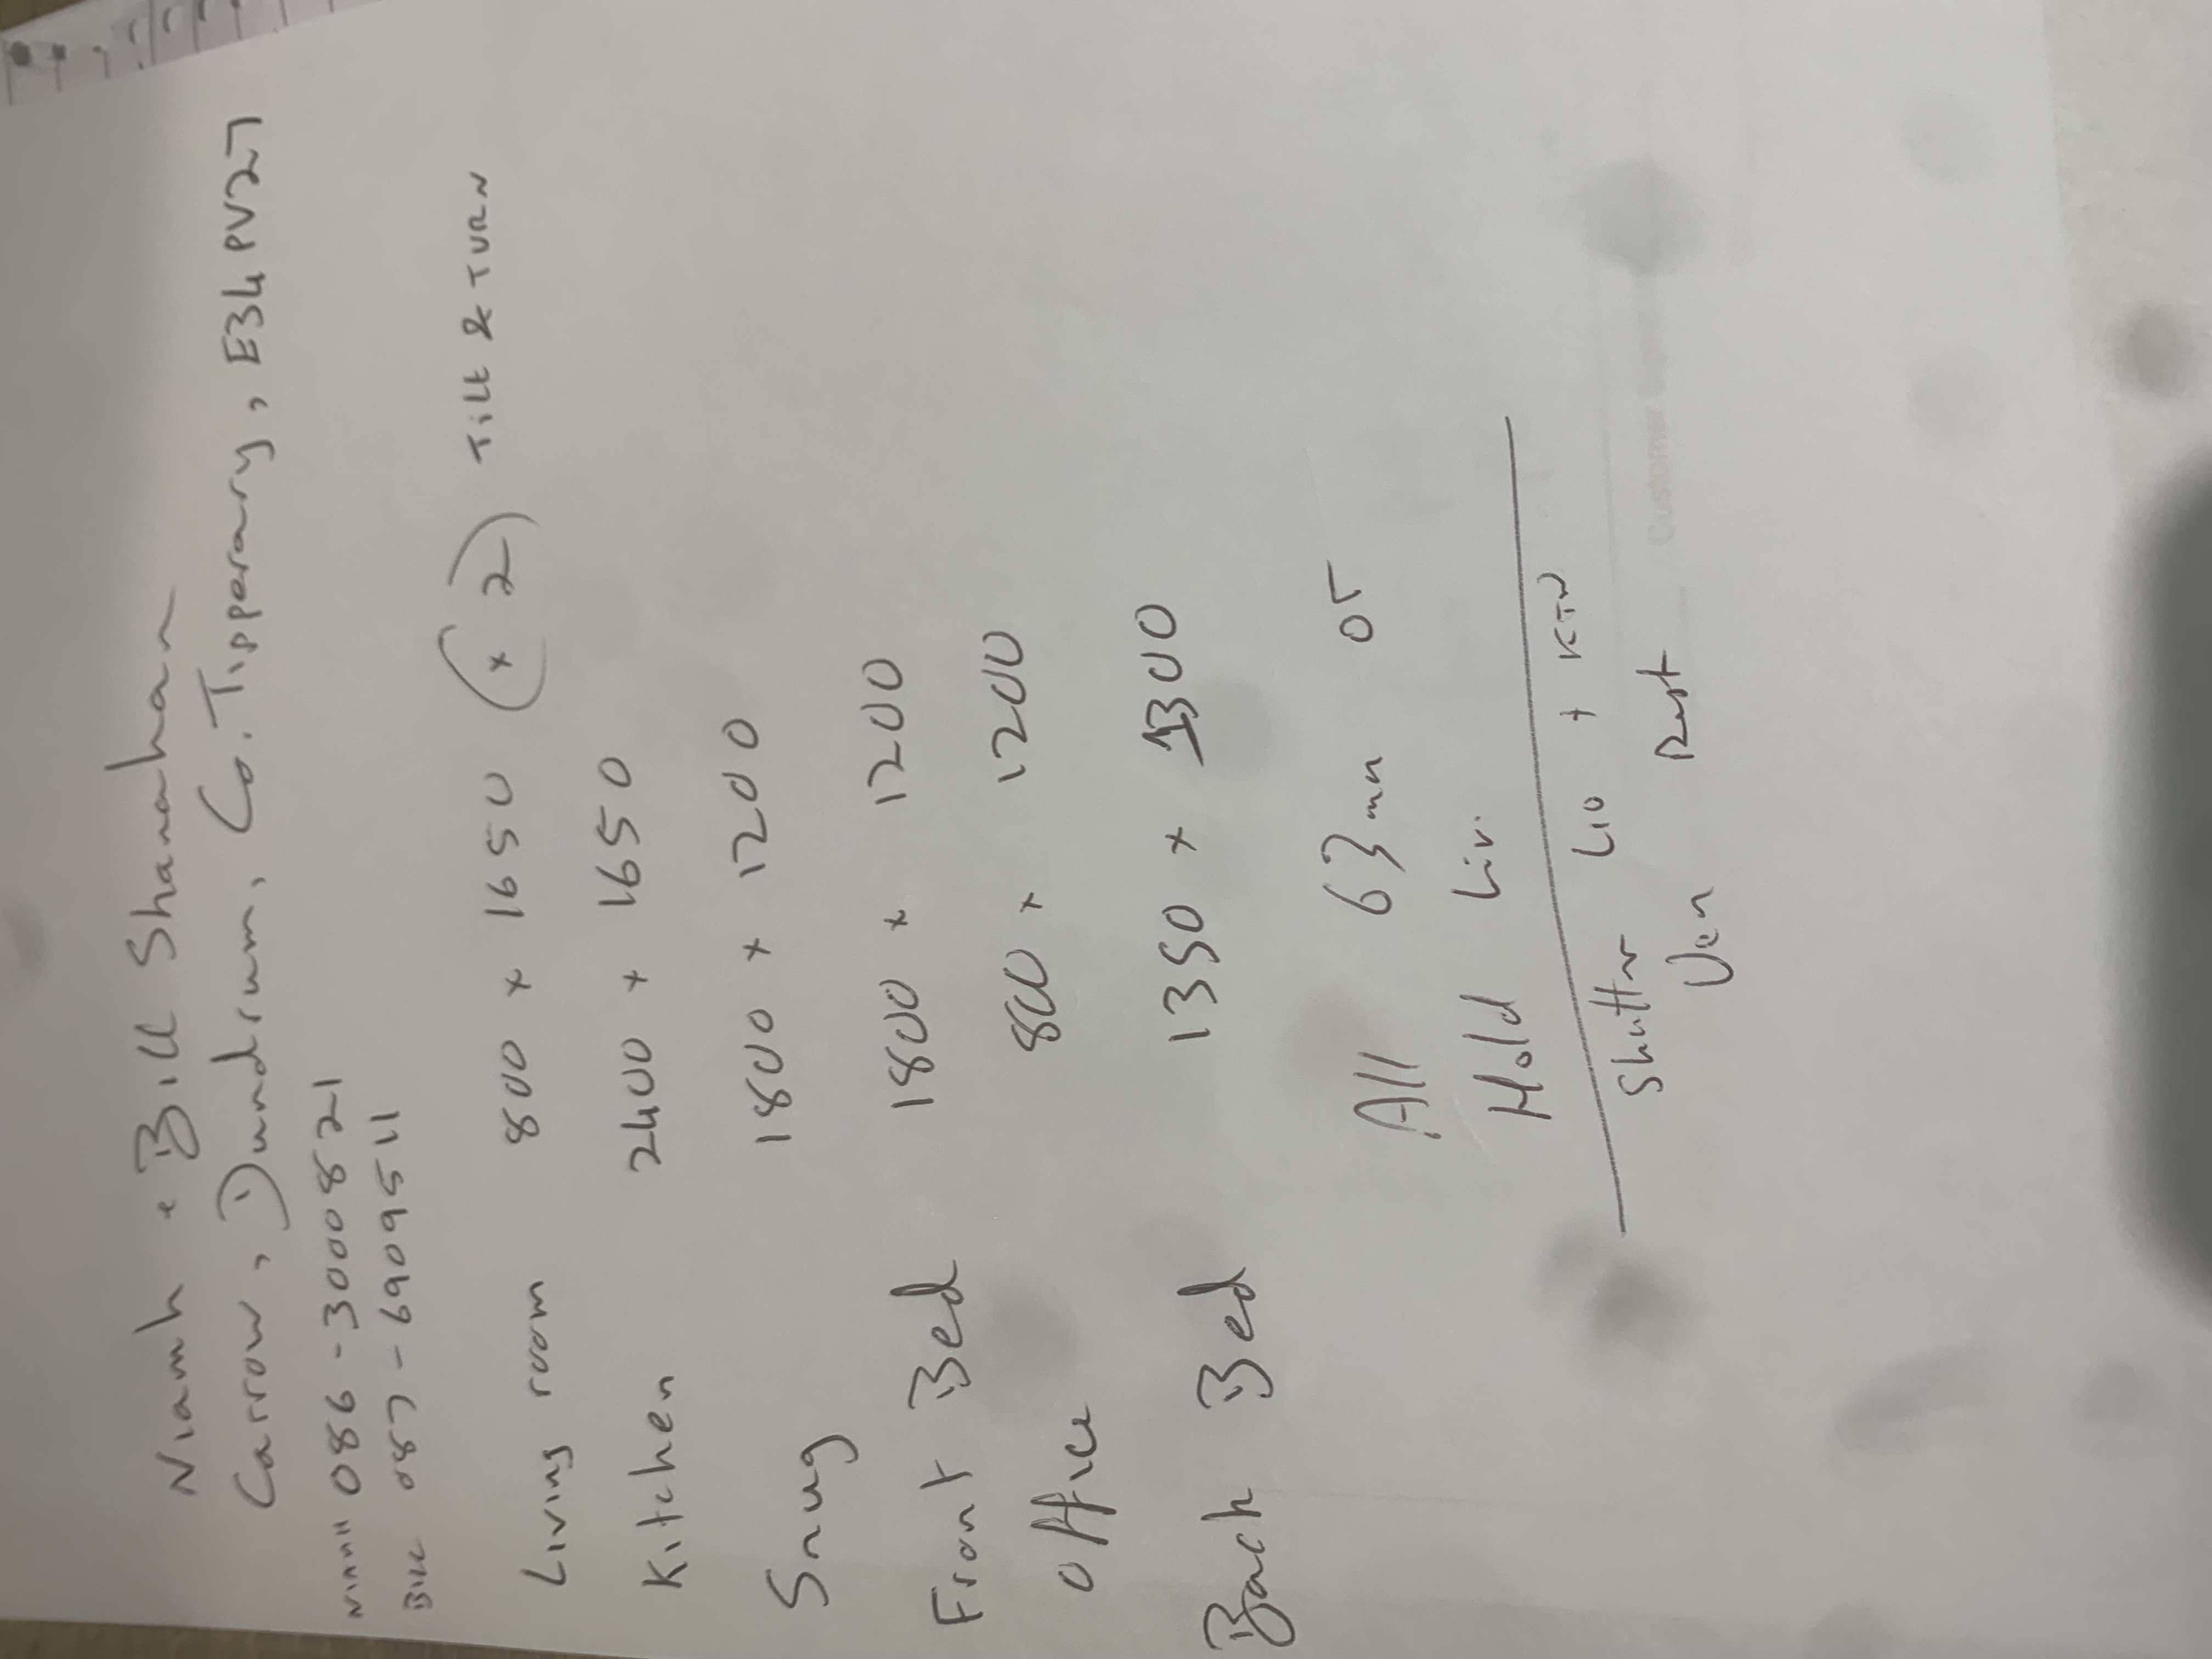 Niamh & Bill Shanahan
Carrow, Dundrum, Co. Tipperary, E34PV27
NIAMH 086-3000821
Bill 087-6909511
Living room 800 x 1650 (x 2) Tilt & TURN
Kitchen 2400 x 1650
Snug 1800 x 1200
Front Bed 1800 x 1200
Office 800 x 1200
Back Bed 1350 x 1300
All 63mm or
Hold Liv.
Shutter Liv + KTN
Ven Rest
Custome